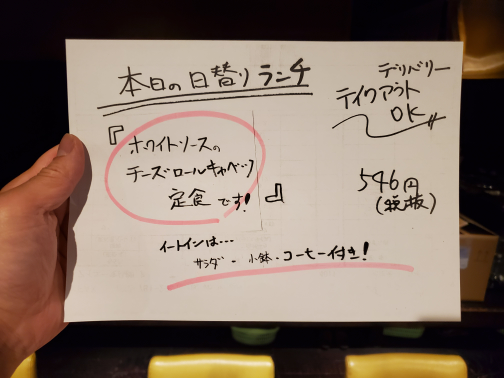 本日の日替りランチ
デリバリー
テイクアウト
OK
『ホワイトソースの
チーズロールキャベツ
定食です!』
546円
(税抜)
イートインは…
サラダ・小鉢・コーヒー付き!